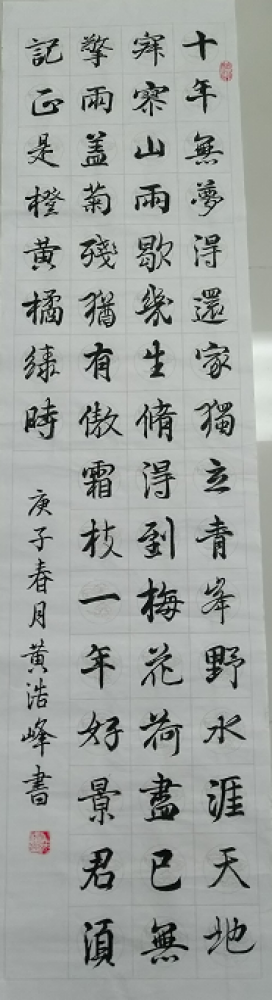 十年無夢得還家獨立青峯野水涯天地
寂寥山雨歇幾生脩得到梅花荷盡已無
擎雨盖菊殘猶有傲霜枝一年好景君須
記正是橙黄橘緑時
庚子春月黄浩峰書